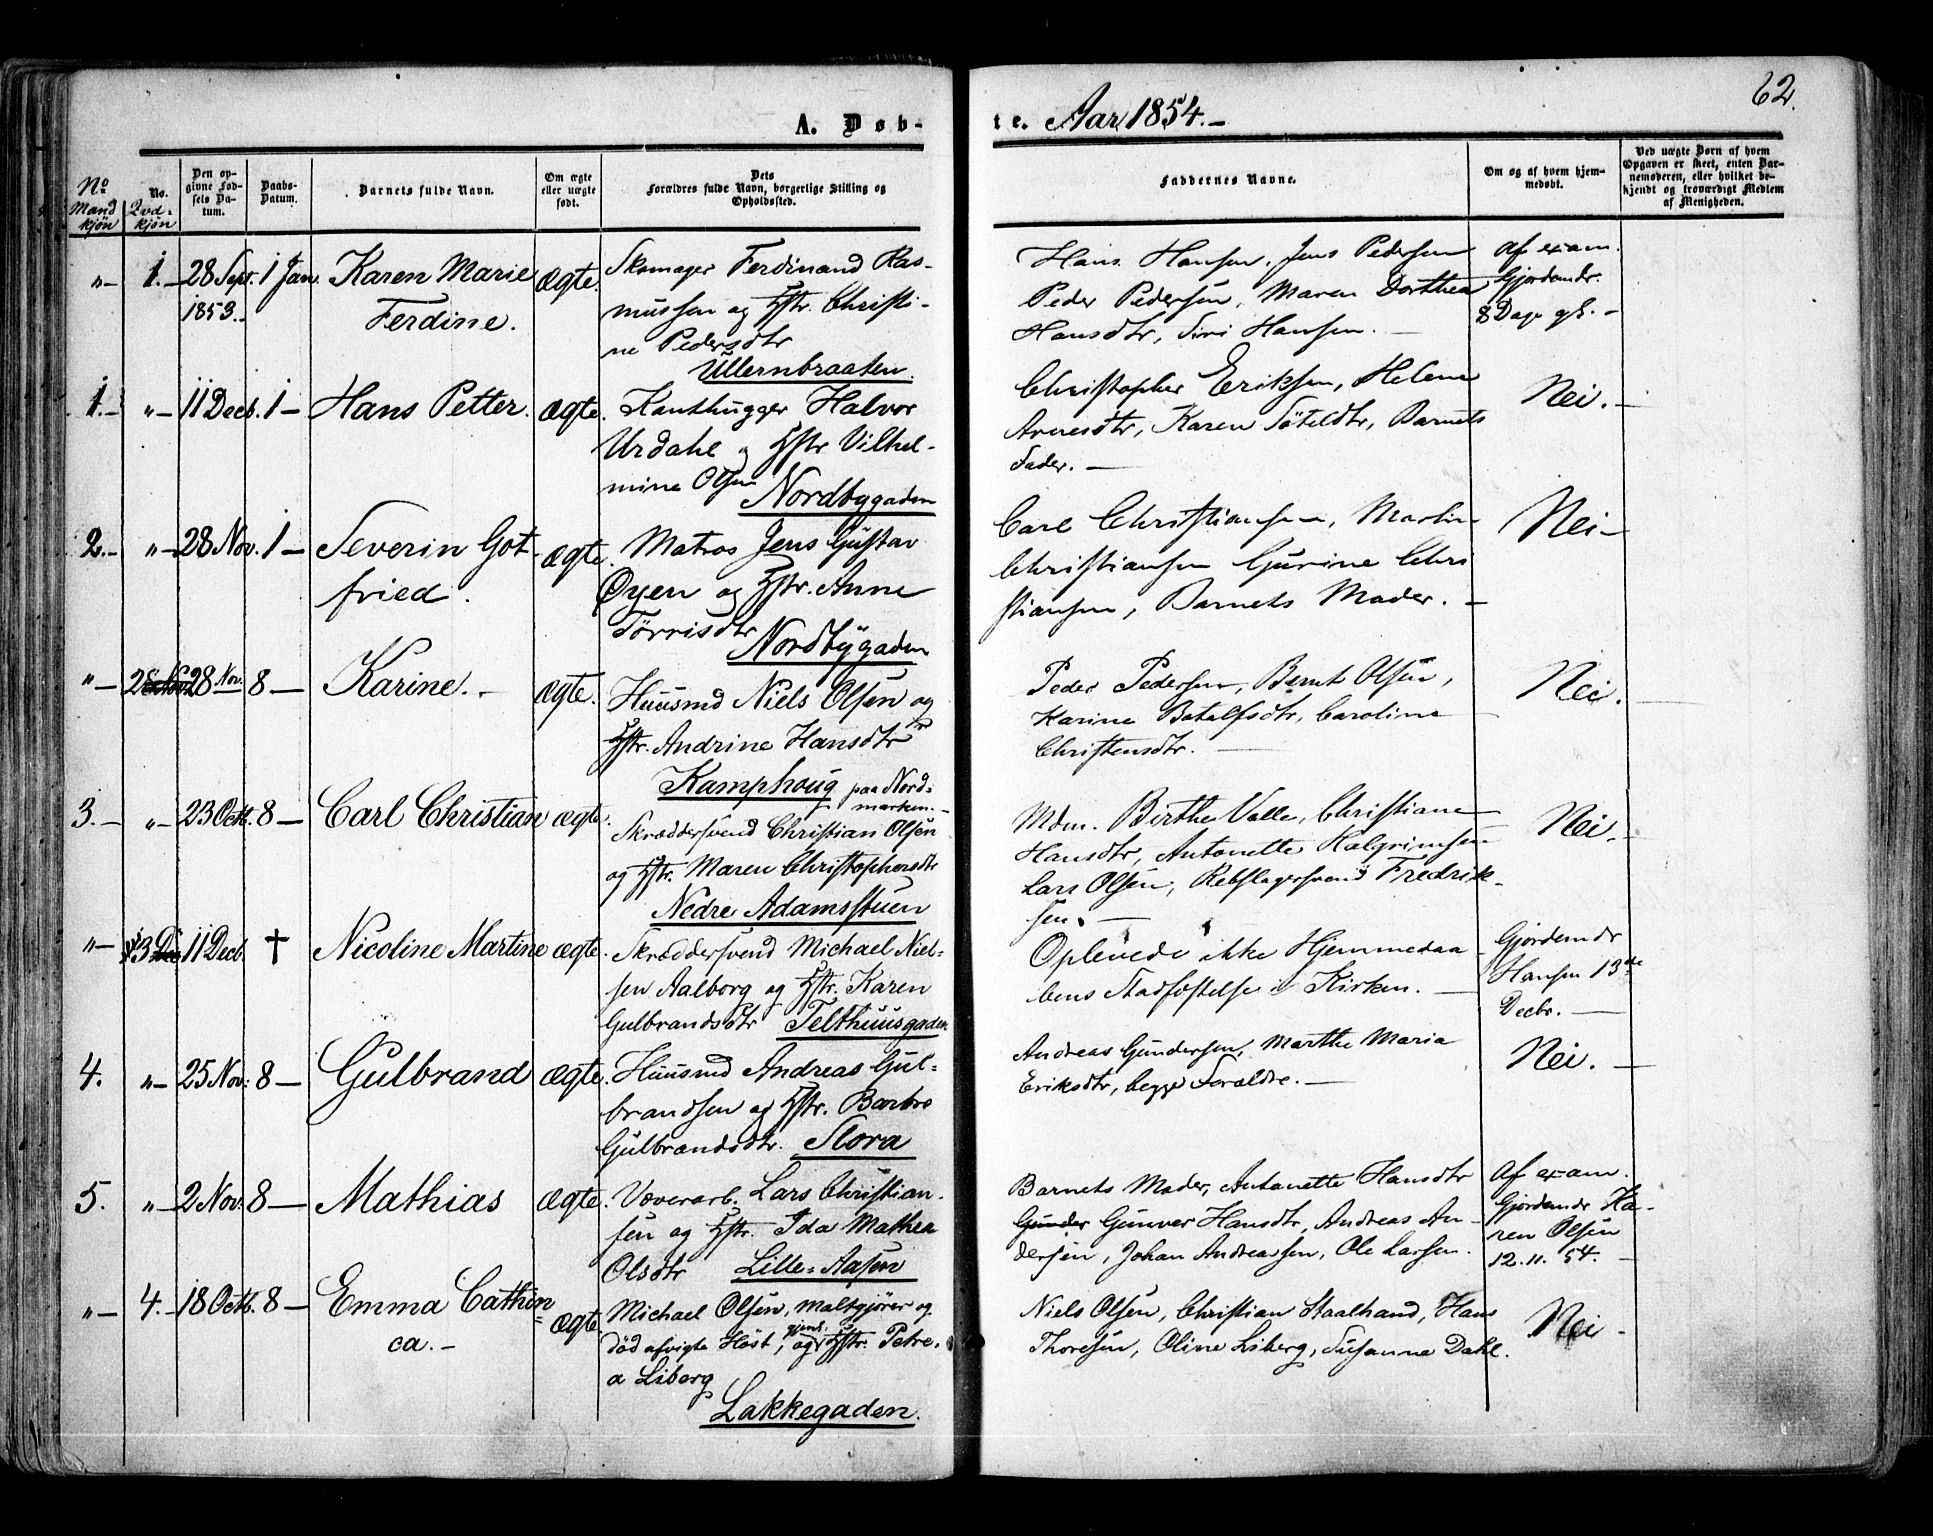 62.
A. Døb-
te. Aar 1854.-
No Mand kjøn
No. Qvd= kjøn
Den opgivne Fødsels Datum.
Daabs-Datum.
Barnets fulde Navn.
Om ægte eller uægte født.
Dets Forældres fulde Navn, borgerlige Stilling og Opholdssted.
Faddernes Navne.
Om og af hvem hjemmedøbt.
Ved uægte Børn af hvem Opgaven er skeet, enten Barnemoderen, eller hvilket bekjendt og troværdigt Medlem af Menigheden.
"- 1.- 28 Sept. 1853.- 1 Jan. Karen Marie Ferdine. ægte.
Skomager Ferdinand Ras-
mussen og Hstr. Christi-
ne Pedersdtr
Ullernbraaten.
Hans Hansen, Jens Pedersen
Peder Pedersen, Maren Dorthea
Hansdtr, Siri Hansen. -
af exam.
Gjordemdr.
8 Dage gl. -
1.- "- 11 Decb. 1 - Hans Petter. ægte.
Kanthugger Halvor
Urdahl og Hstr Vilhel-
mine Olsen Nordbygaden
Christopher Eriksen, Helene
Arnesdtr, Karen Söteldtr, Barnets
Fader. -
Nei. -
2.- "- 28 Nov. 1 - Severin Got-
fried. ægte.
Matros Jens Gustav
Øyen og Hstr. Anne
Tørrisdtr Nordbygaden
Carl Christiansen, Martin
Christiansen Gurine Chri
stiansen, Barnets Moder. -
Nei -
"- 2 28 Nov. 8 - Karine. - ægte.
Huusmd Niels Olsen og
Hstr. Andrine Hansdtr
Kamphoug paa Nord=
marken. -
Peder Pedersen, Bernt Olsen,
Karine Botolfsdtr, Caroline
Christensdtr. -
Nei. -
3.- "- 23 Octb. 8 - Carl Christian ægte.
Skræddersvend Christian Olsen
og Hstr. Maren Christophersdtr
Nedre Adamsstuen
Mdm. Birthe Valle, Christiane
Hansdtr, Antonette Halgrimsen
Lars Olsen, Rebslagersvend Fredrik-
sen. -
Nei. -
"- 3 11 Decb. † Nicoline Martine ægte.
Skræddersvend Michael Niel-
sen Aalborg og Hstr. Karen
Gulbrandsdtr Telthuusgaden
Oplevede ikke Hjemmedaa
bens Stadfæstelse i Kirken. -
Gjordemdr
Hansen 13de
Decbr. -
4. "- 25 Nov: 8 - Gulbrand ægte.
Huusmd Andreas Gul-
brandsen og Hstr. Barbro
Gulbrandsdtr. Slora
Andreas Gundersen, Marthe Maria
Eriksdtr, begge Forældre. -
Nei. -
5. "- 2 Nov: 8 - Mathias ægte.
Væverarb. Lars Christian-
sen og Hstr. Ida Mathea
Olsdtr Lille=Aasen
Barnets Moder, Antonette Hansdtr
Gunder Gunver Hansdtr, Andreas An-
dersen, Johan Andreassen, Ole Larsen.
Af exam.
Gjordemdr Ka-
ren Olsen
12. 11. 54. -
"- 4.- 18 Octb. 8 - Emma Cathin=
ca. - ægte.
Michael Olsen, Maltgjører og
død afvigte Høst, og gjenl. Hstr. Petre-
a Liberg
Lakkegaden.
Niels Olsen, Christian Staalhand, Hans
Thoresen, Oline Liberg, Susanne Dahl.
Nei -